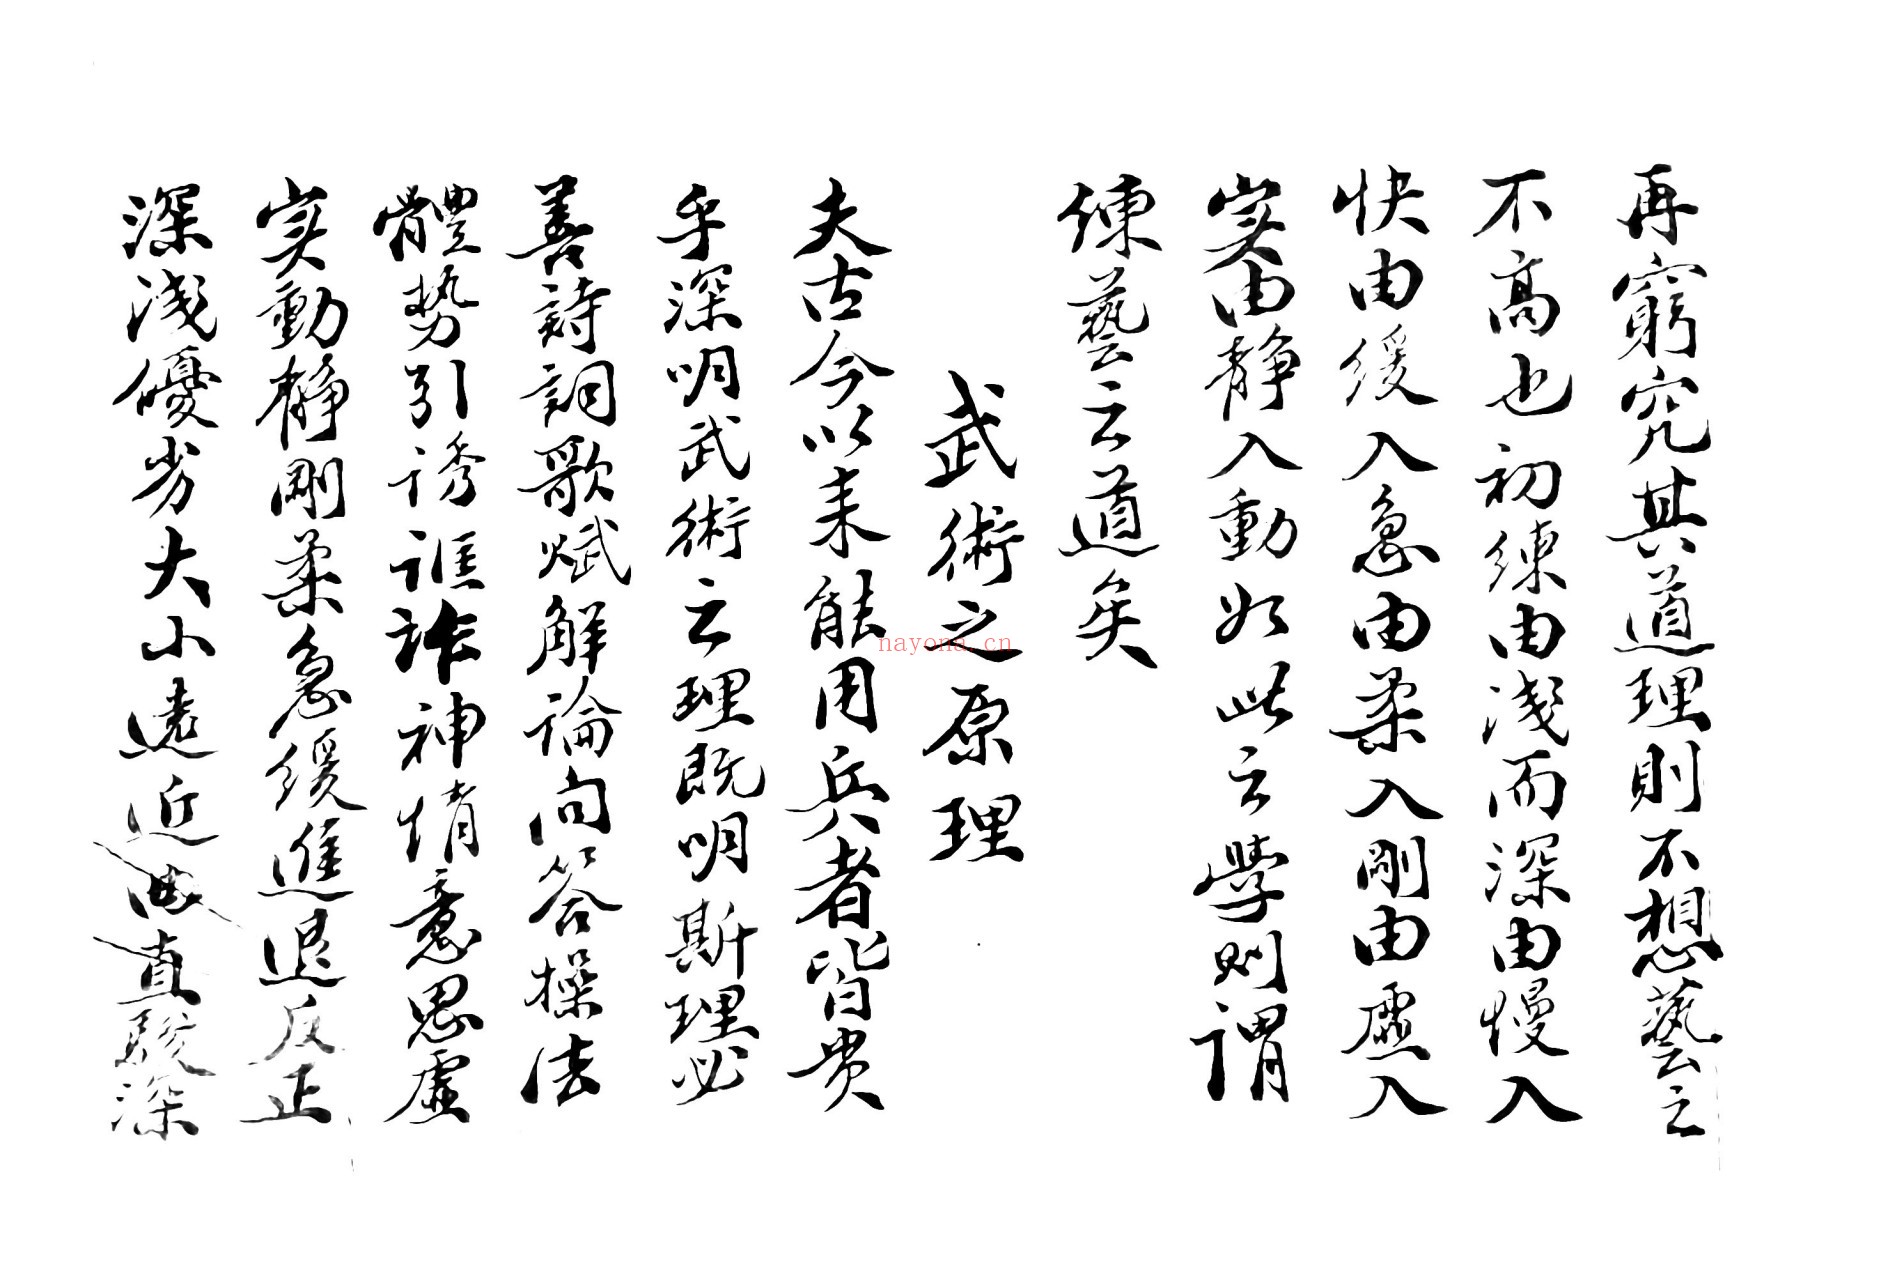 再窮究其道理則不想藝之
不高也初練由淺而深由慢入
快由緩入急由柔入剛由虛入
実由靜入動如此之學則謂
練藝之道矣
武術之原理
夫古今以來能用兵者皆贵
乎深明武術之理既明斯理必
善詩詞歌赋解論问答操法
體势引诱誆詐神情意思虛
実動静剛柔急緩進退反正
深淺優劣大小遠近曲直
nayona.cn